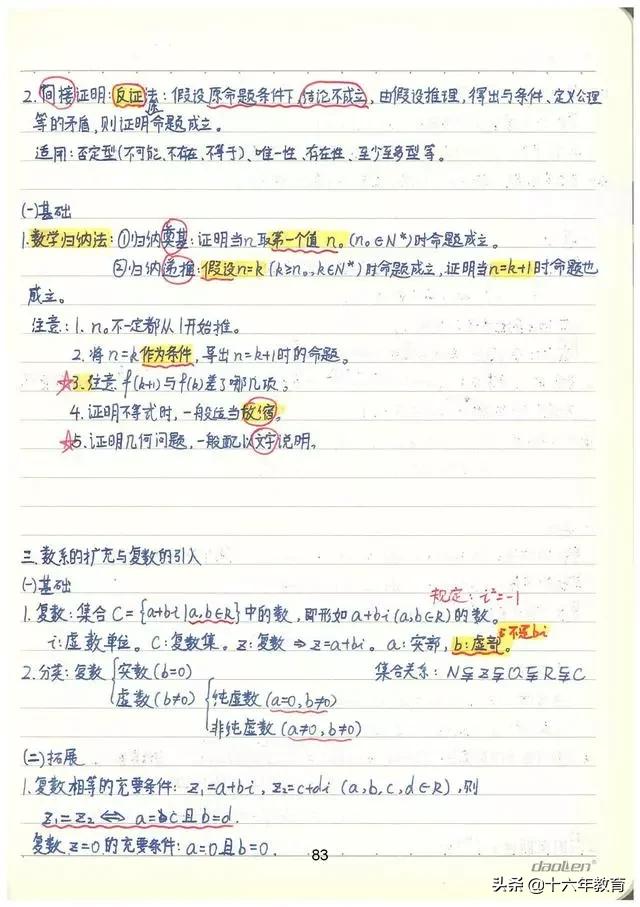 2.间接证明:反证法:假设原命题条件下,结论不成立,由假设推理,得出与条件、定义公理
等的矛盾,则证明命题成立。
适用:否定型(不可能、不存在、不等于)、唯一性、存在性、至少至多型等。
(一)基础
1.数学归纳法:①归纳奠基:证明当n取第一个值 n₀ (n₀∈N*)时命题成立。
②归纳递推:假设n=k (k≥n₀,k∈N*)时命题成立,证明当n=k+1时命题也
成立。
注意:1、n₀不一定都从1开始推。
2.将n=k作为条件,导出n=k+1时的命题。
☆3.注意f(k+1)与f(k)差了哪几项;
4.证明不等式时,一般适当放缩。
☆5.证明几何问题,一般配以文字说明。
三.数系的扩充与复数的引入
(一)基础
规定:i²=-1
1.复数:集合C={a+bi|a,b∈R}中的数,即形如a+bi(a,b∈R)的数。
不是bi
i:虚数单位。C:复数集。z:复数⇒z=a+bi。a:实部,b:虚部。
2.分类:复数{实数(b=0) 集合关系:N⫋Z⫋Q⫋R⫋C
虚数(b≠0){纯虚数(a=0,b≠0)
非纯虚数(a≠0,b≠0)
(二)拓展
1.复数相等的充要条件:z₁=a+bi,z₂=c+di (a,b,c,d∈R),则
z₁=z₂⇔a=c且b=d.
复数z=0的充要条件:a=0且b=0.
83
daolen®
头条@十六年教育